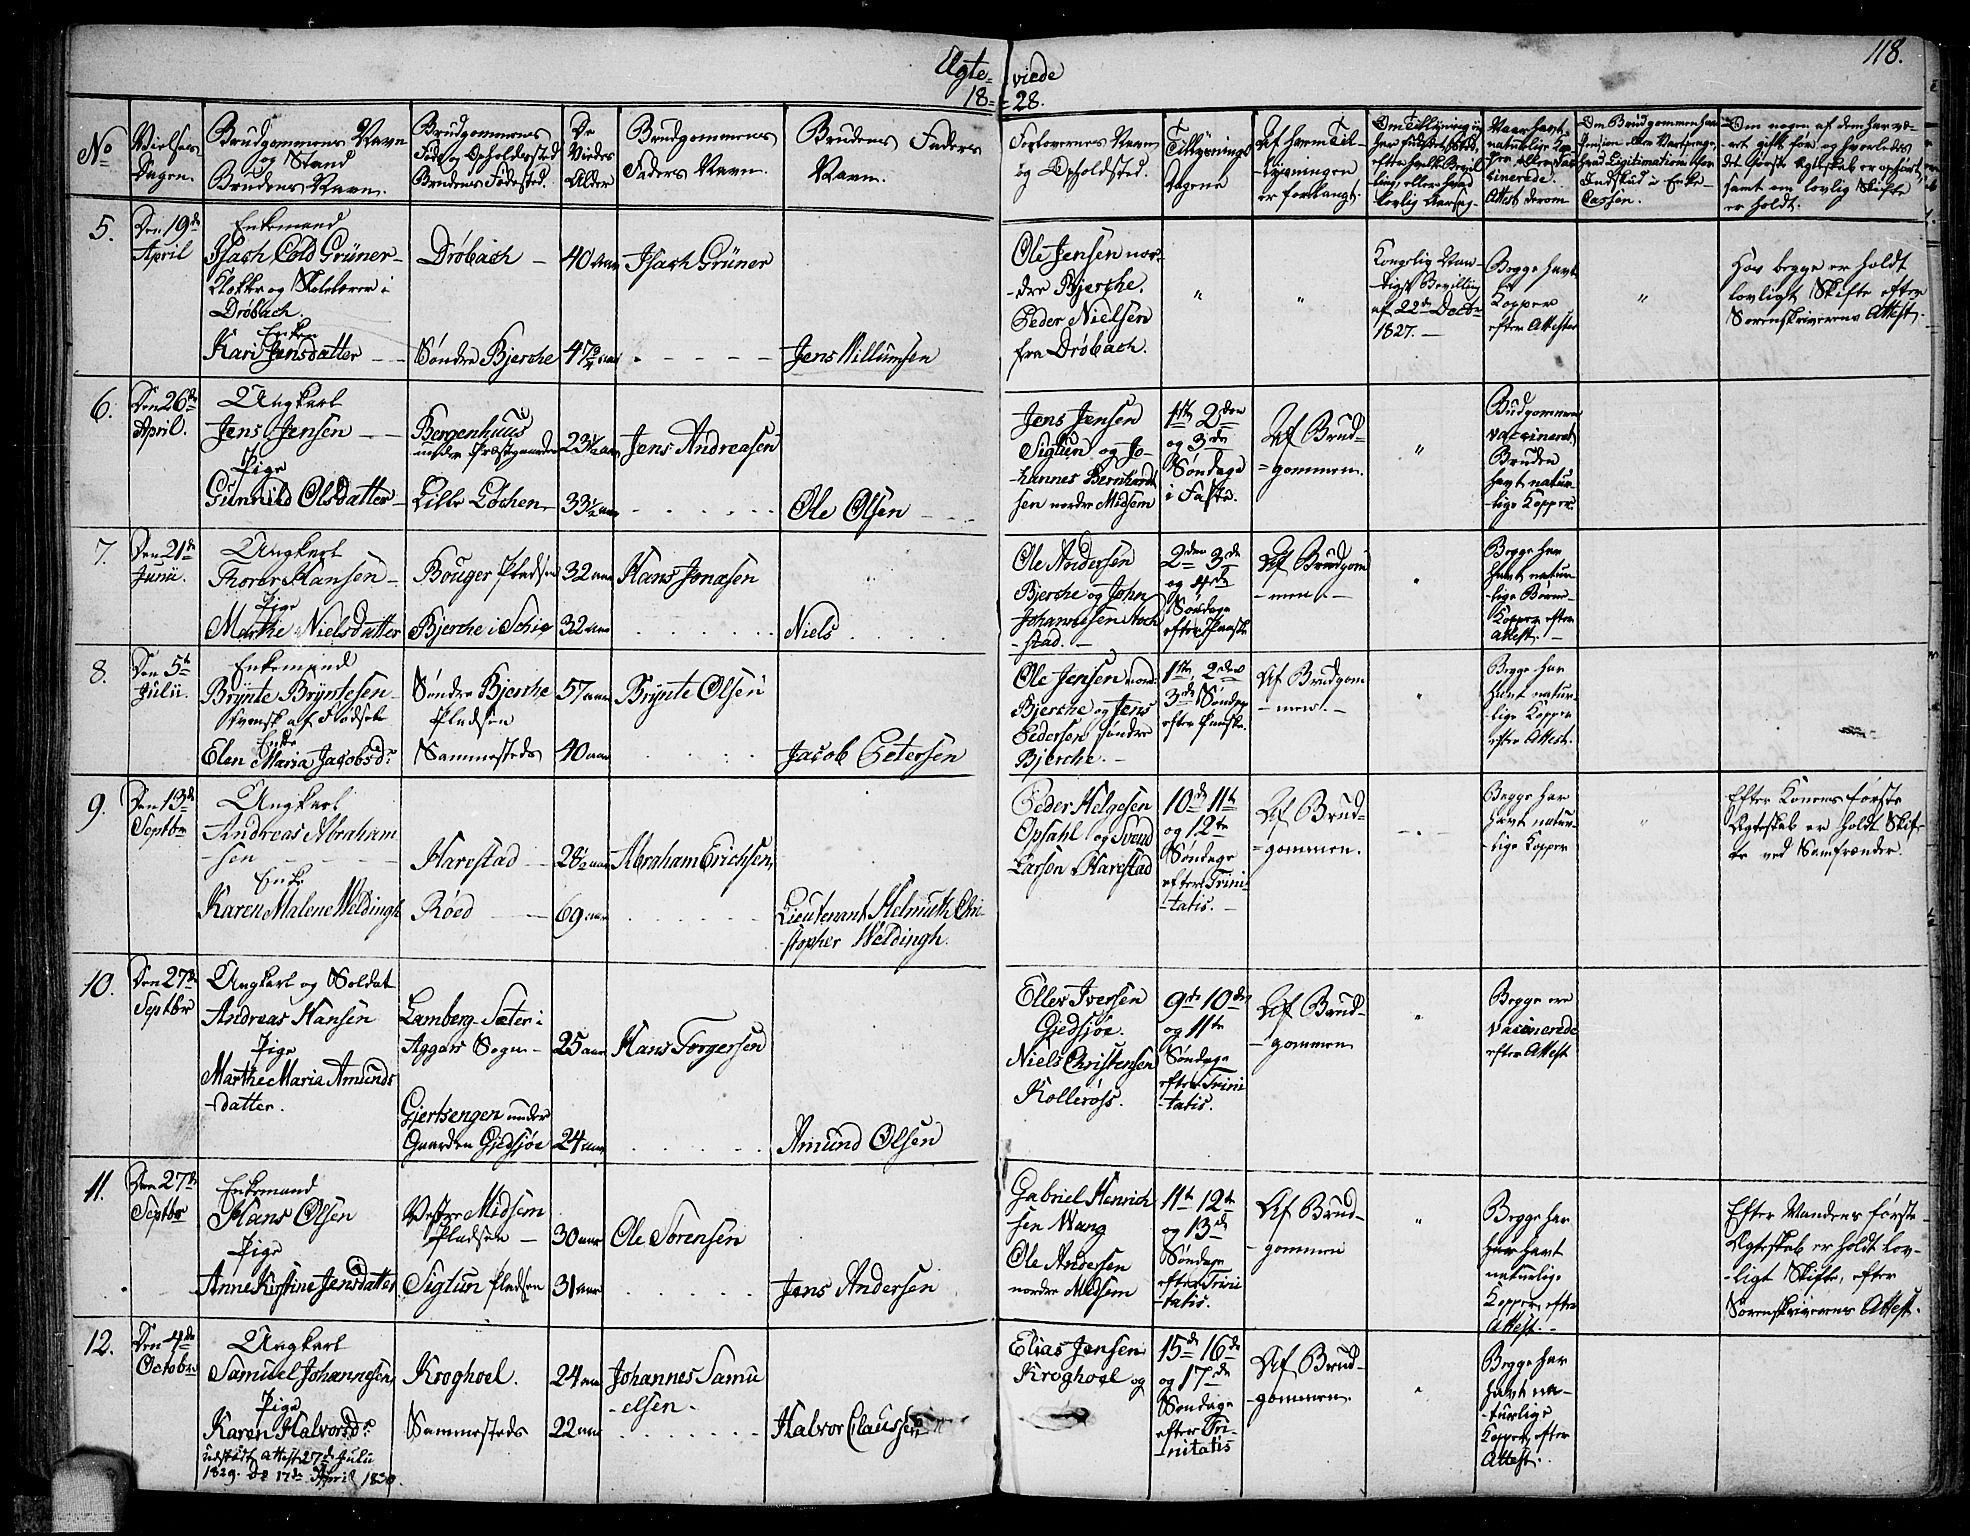 118.
Ægte= viede
18= =28.
No
Vielses
Dagen.
Brudgommens Navn
og Stand
Brudens Navn.
Brudgommens
Føde og Opholdssted
Brudens Fødested.
De
Viedes
Alder
Brudgommens
Faders Navn.
Brudens Faders
Navn.
Forlovernes Navn
og Opholdsted.
Tillysnings
dagene
Af hvem Til-
lysningen
er forlangt.
5.
Den 19de
April
Enkemand
Isach Cold Grüner-
Klokker og Skolelærer i
Drøbach.
Enken
Kari Jensdatter
Drøbach
Søndre Bjerche
40 aar
47¾ aar
Isach Grüner
Jens Willumsen
Ole Jensen nor-
dre Bjerche.
Peder Nielsen
fra Drøbach.
"
"
Kongelig Naa-
digst Bevilling
af 22de Decbr
1827.
Begge havt
Kopper
efter Attester
"
Hos begge er holdt
lovligt Skifte efter
Sorenskriverens Attest.
6.
Den 26de
April.
Ungkarl
Jens Jensen
Pige
Gunnild Olsdatter
Bergenhuus
under Præstegaarden
Lille Løchen
23½ aar
33½ aar
Jens Andreasen
Ole Olsen
Jens Jensen
Siglun og Jo-
hannes Bernhardt
sen nordre Midsem
1ste 2den
og 3de
Søndage
i Faste.
Af Brud-
=gommen.
"
Brudgommen
vaccineret
Bruden
havt natur-
lige Kopper.
7.
Den 21de
Junii.
Ungkarl
Thorer Hansen
Pige
Marthe Nielsdatter
Bouger Pladsen
Bjerche i Schie
32 aar
32 aar
Hans Jonasen
Niels
Ole Andersen
Bjerche og John
Johannesen Aoch
-stad.
2den 3de
og 4de
Søndage
efter Paaske
Af Brudgom
-men.
Begge har
havt natur
-lige Børne-
Kopper efter
Attest.
8.
Den 5te
Julii.
Enkemand
Brynte Bryntesen
Svensk af Fødsel
Enke
Elen Maria Jacobsdr
Søndre Bjerche
Pladsen
Sammesteds
57 aar
40 aar
Brynte Olsen
Jacob Petersen
Ole Jensen nor:
Bjerche og Jens
Pedersen søndre
Bjerche.
1ste 2den
3de Søndag
efter Paaske.
Af Brudgom
-men.
Begge har
havt natur-
-lige Kopper
efter Attest.
9.
Den 13de
Septbr
Ungkarl
Andreas Abraham
-sen
Enke
Karen Malene Weldingh
Harestad
Røed
28½ aar
69 aar
Abraham Erichsen,
Lieutenant Helmuth Chri-
-stopher Weldingh.
Peder Helgesen
Opsahl og Svend
Larsen Harestad
10de 11te
og 12te
Søndage
efter Trini-
-tatis.
Af Brud-
=gommen.
Begge har
havt natur-
lige Kopper
"
Efter Konens første
Ægteskab er holdt Skif-
te ved Samfrænder.
10.
Den 27de
Septbr
Ungkarl og Soldat
Andreas Hansen
Pige
Marthe Maria Amunds
-datter.
Lamberg-Sæter i
Aggers Sogn
Gjertsengen under
Gaarden Gjedsjøe
25 aar
24 aar
Hans Torgersen
Amund Olsen
Eller Iversen
Gjedsjøe.
Niels Christensen
Kolleröss.
9de 10de
og 11te
Søndage
efter Trini
-tatis.
Af Brud-
-gommen
"
Begge ere
vaccinerede
efter Attest
11.
Den 27de
Septbr
Enkemand
Hans Olsen
Pige
Anne Kirstine Jensdatter
Vestre Midsem
Pladsen
Siglun Pladsen
30 aar
31 aar
Ole Sørensen
Jens Andersen
Gabriel Henrich
sen Wang
Ole Andersen
nordre Midsem
11te 12te
og 13de
Søndage
efter Trini
-tatis.
Af Brud-
-gommen
"
Begge har
har havt
naturlige
Kopper, efter
Attest.
Efter Mandens første
Ægteskab er holdt lov-
-ligt Skifte, efter
Sorenskriverens Attest.
12.
Den 4de
October
Ungkarl
Samuel Johannesen
Pige
Karen Halvorsdr
udstædt Attest 27de Julii
1829. do 17de April 1830.
Kroghoel.
Sammesteds
24 aar
22 aar
Johannes Samu
-elsen.
Halvor Claussen
Elias Jensen
Kroghoel og
15de 16de
og 17de
Søndage
efter Tri-
nitatis
Af Brud-
gommen.
"
Begge har
havt na-
-turlige
Kopper, efter
Attest.